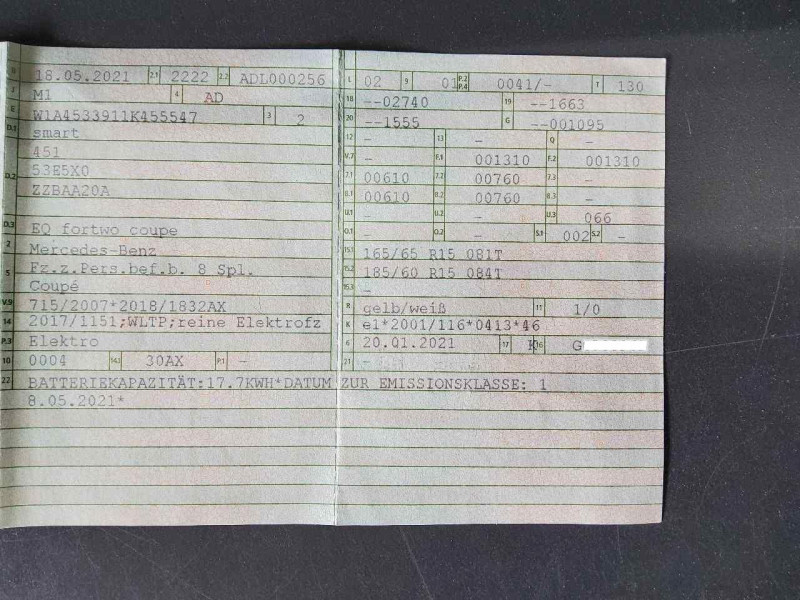 B 18.05.2021 2.1 2222 2.2 ADL000256
J M1 4 AD
E W1A4533911K455547 3 2
D.1 smart
451
D.2 53E5X0
ZZBAA20A
D.3 EQ fortwo coupe
2 Mercedes-Benz
5 Fz.z.Pers.bef.b. 8 Spl.
Coupé
V.9 715/2007*2018/1832AX
14 2017/1151;WLTP;reine Elektrofz
P.3 Elektro
10 0004 14.1 30AX P.1 -
22 BATTERIEKAPAZITÄT:17.7KWH*DATUM ZUR EMISSIONSKLASSE: 1
8.05.2021*
L 02 9 01 P.2 P.4 0041/- T 130
18 --02740 19 --1663
20 --1555 G --001095
12 - 13 - Q -
V.7 - F.1 001310 F.2 001310
7.1 00610 7.2 00760 7.3 -
8.1 00610 8.2 00760 8.3 -
U.1 - U.2 - U.3 066
O.1 - O.2 - S.1 002 S.2 -
15.1 165/65 R15 081T
15.2 185/60 R15 084T
15.3 -
R gelb/weiß 11 1/0
K e1*2001/116*0413*46
6 20.01.2021 17 K 16 G
21 -